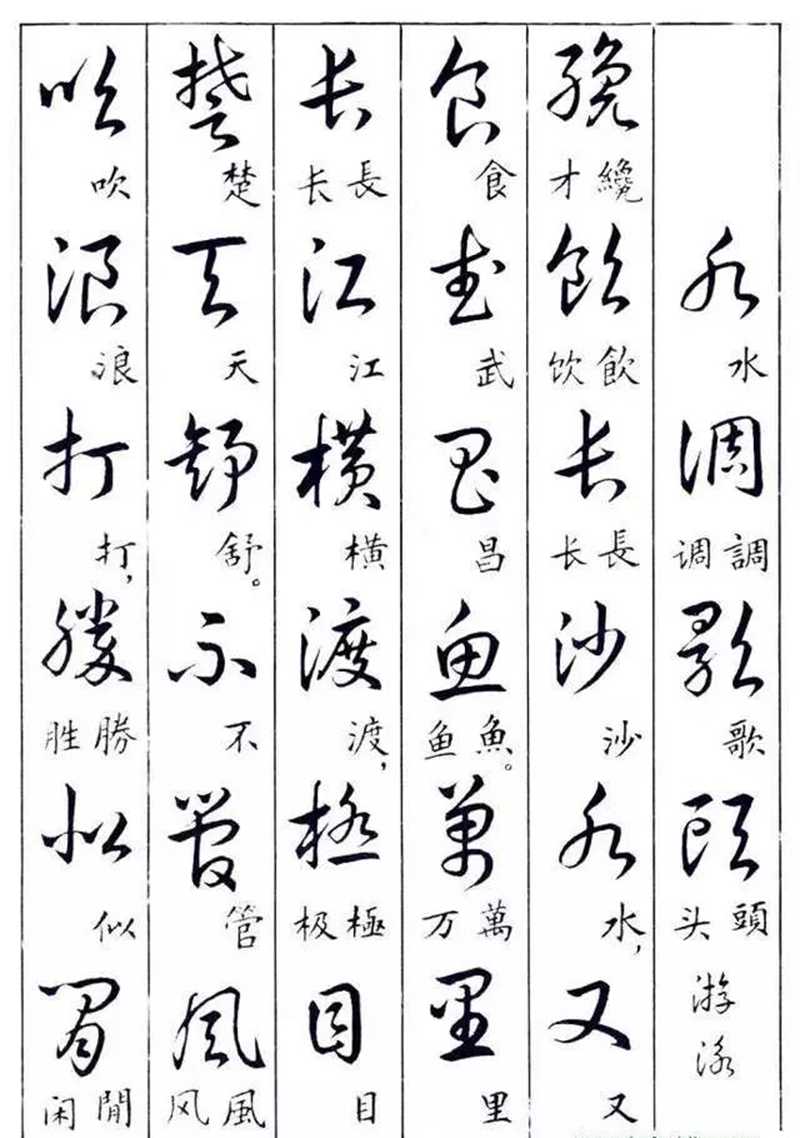 水 水 調 調调 歌 歌 頭 頭头 游泳
纔 纔才 飲 飲饮 长 長长 沙 沙 水 水， 又 又
食 食 武 武 昌 昌 鱼 魚鱼。 萬 萬万 里 里
长 長长 江 江 横 横 渡 渡， 極 極极 目 目
楚 楚 天 天 舒 舒。 不 不 管 管 風 風风
吹 吹 浪 浪 打 打， 勝 勝胜 似 似 閒 閒闲